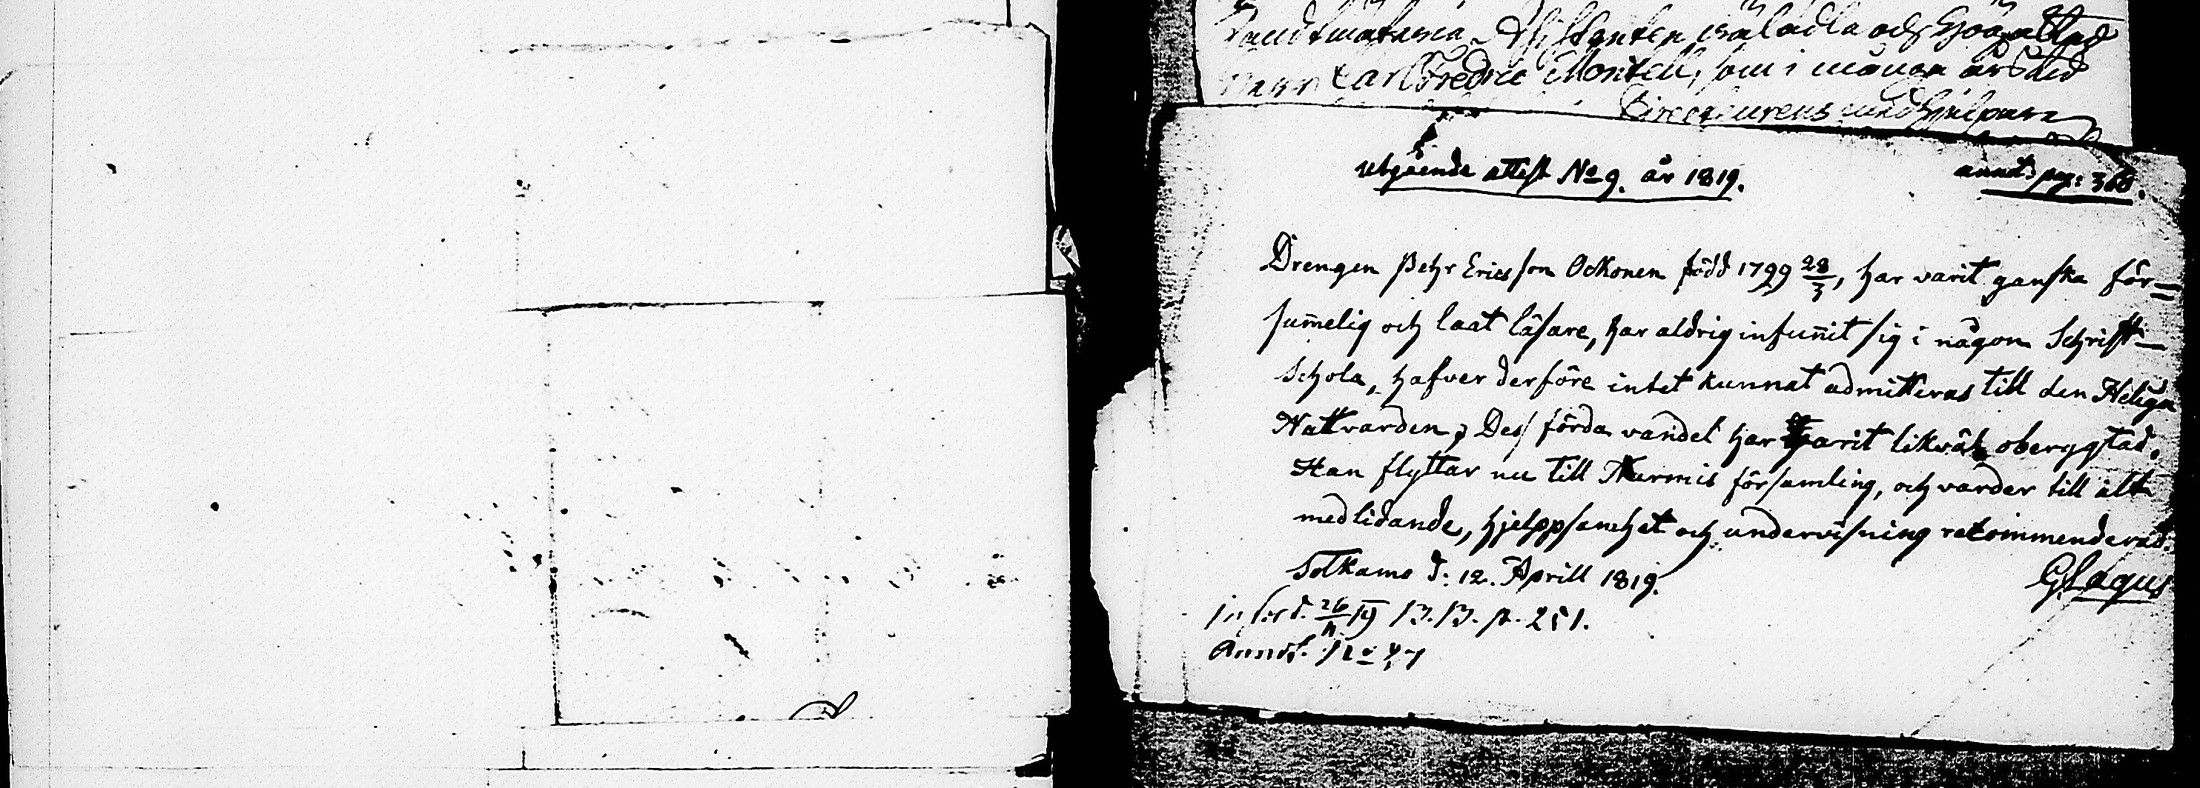 Landtmäterie Assistenten wälädla och högaktad
Herr Carl Fredric Montell, som i många år stid
Directeurens medhjelpare
Utgående attest No 9. år 1819.
annot: pag: 360.
Drengen Pehr Ericsson Ockonen född 1799 28/3, har varit ganska för=
sum̄elig och laat läsare, har aldrig infun̄it sig i någon Schrift-
Schola, hafver derföre intet kunnat admitteras till den Heliga
Nattvarden; Dess förda vandel har varit likväl oberygtad.
Han flyttar nu till Nurmis församling, och varder till alt
medlidande, hjelppsamhet och undervisning rekommenderad.
Sotkamo d: 12. Aprill 1819.
G Lagus
Inford. 26/4 19 B.B. p. 251.
Annot. No 47